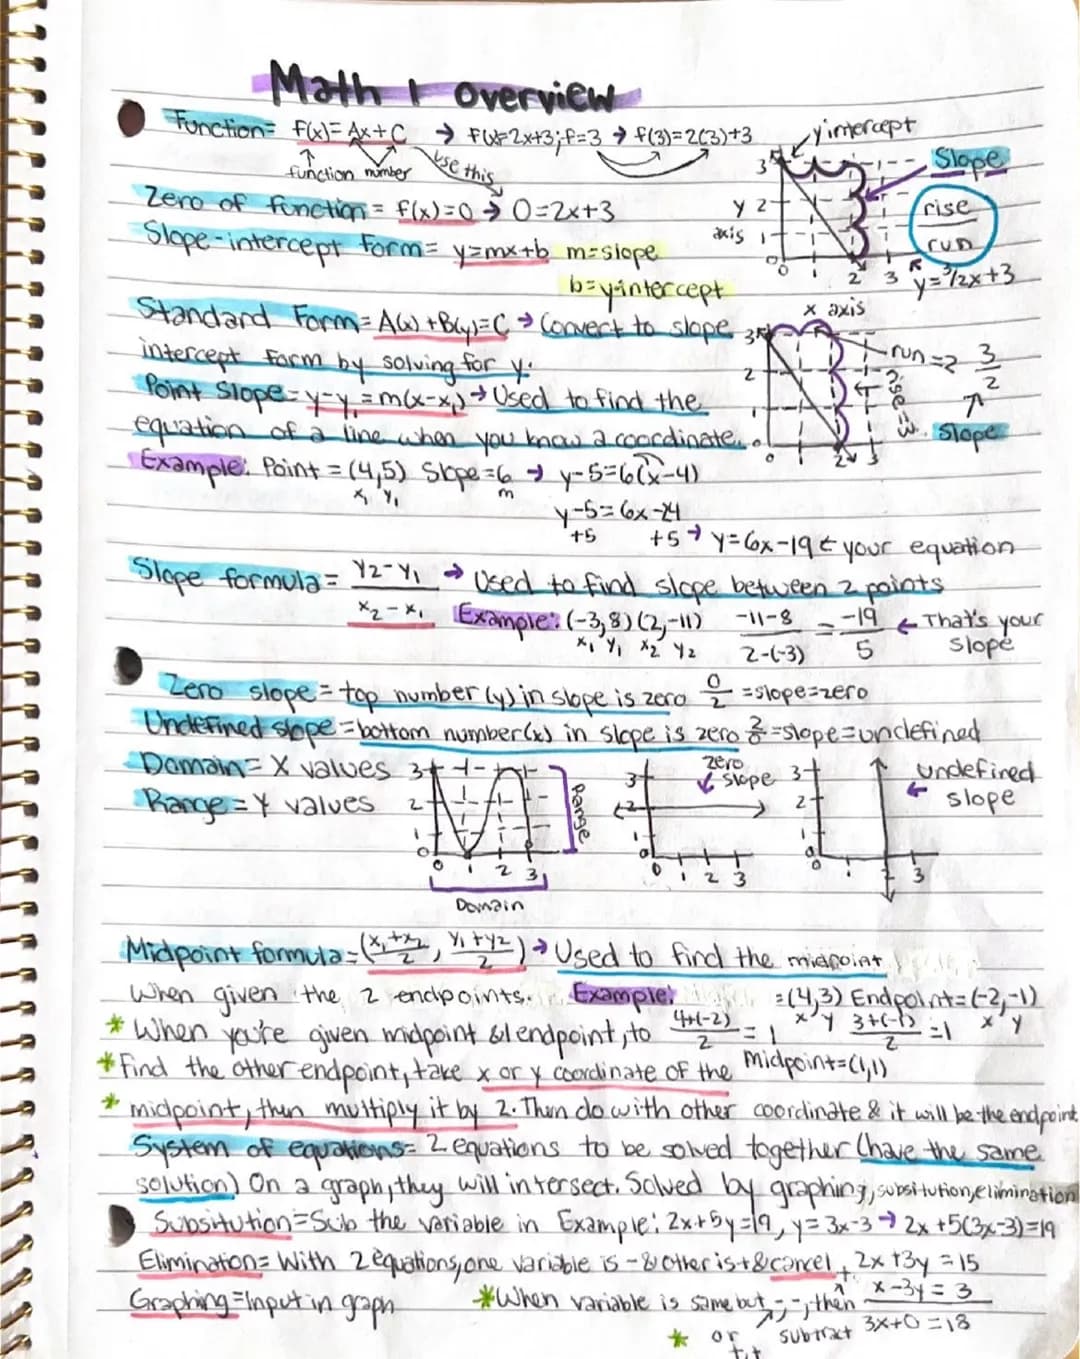 Math 1 overview
Function= f(x)=Ax+C → f(x)=2x+3; f=3 → f(3)=2(3)+3
function number use this
y intercept
Slope
rise
run
3
y 2
axis 1
0
0 1 2 3
y=3/2x+3
x axis
Zero of function= f(x)=0 → 0=2x+3
Slope-intercept form= y=mx+b m=slope
b=y-intercept
Standard Form=A(x)+B(y)=C → Convert to slope
intercept form by solving for y.
Point Slope=y-y₁=m(x-x₁)→ Used to find the
equation of a line when you know a coordinate.
3
2
1
0
0 1 2 3
run=2
rise=3
3/2
Slope
Example: Point=(4,5) Slope=6 → y-5=6(x-4)
x₁ y₁ m
y-5=6x-24
+5 +5 → y=6x-19 ← your equation
Slope formula= y₂-y₁/x₂-x₁ → Used to find slope between 2 points
Example: (-3,8)(2,-11) -11-8/2-(-3) = -19/5 ← That's your slope
x₁ y₁ x₂ y₂
Zero slope=top number(y) in slope is zero 0/2 =slope=zero
Undefined slope=bottom number(x) in slope is zero 2/0=slope=undefined
Domain= X values
Range=Y values
3
2
1
0
0 1 2 3
Range
Domain
3
2
1
0
0 1 2 3
zero
slope
3
2
1
0
0 1 3
undefined
slope
Midpoint formula=(x₁+x₂/2, y₁+y₂/2)→ Used to find the midpoint
When given the 2 endpoints. Example: =(4,3) Endpoint=(-2,-1)
x y x y
*When you're given midpoint & 1 endpoint, to 4+(-2)/2 = 1 3+(-1)/2=1
*find the other endpoint, take x or y coordinate of the Midpoint=(1,1)
* midpoint, then multiply it by 2. Then do with other coordinate & it will be the endpoint
System of equations= 2 equations to be solved together (have the same
solution) On a graph, they will intersect. Solved by graphing, subsitution, elimination
Subsitution=Sub the variable in Example: 2x+5y=19, y=3x-3→ 2x+5(3x-3)=19
Elimination= With 2 equations, one variable is - & other is + & cancel 2x+3y=15
+ x-3y=3
3x+0=18
Graphing=Input in graph *When variable is same but -,-, then subtract
* or +,+